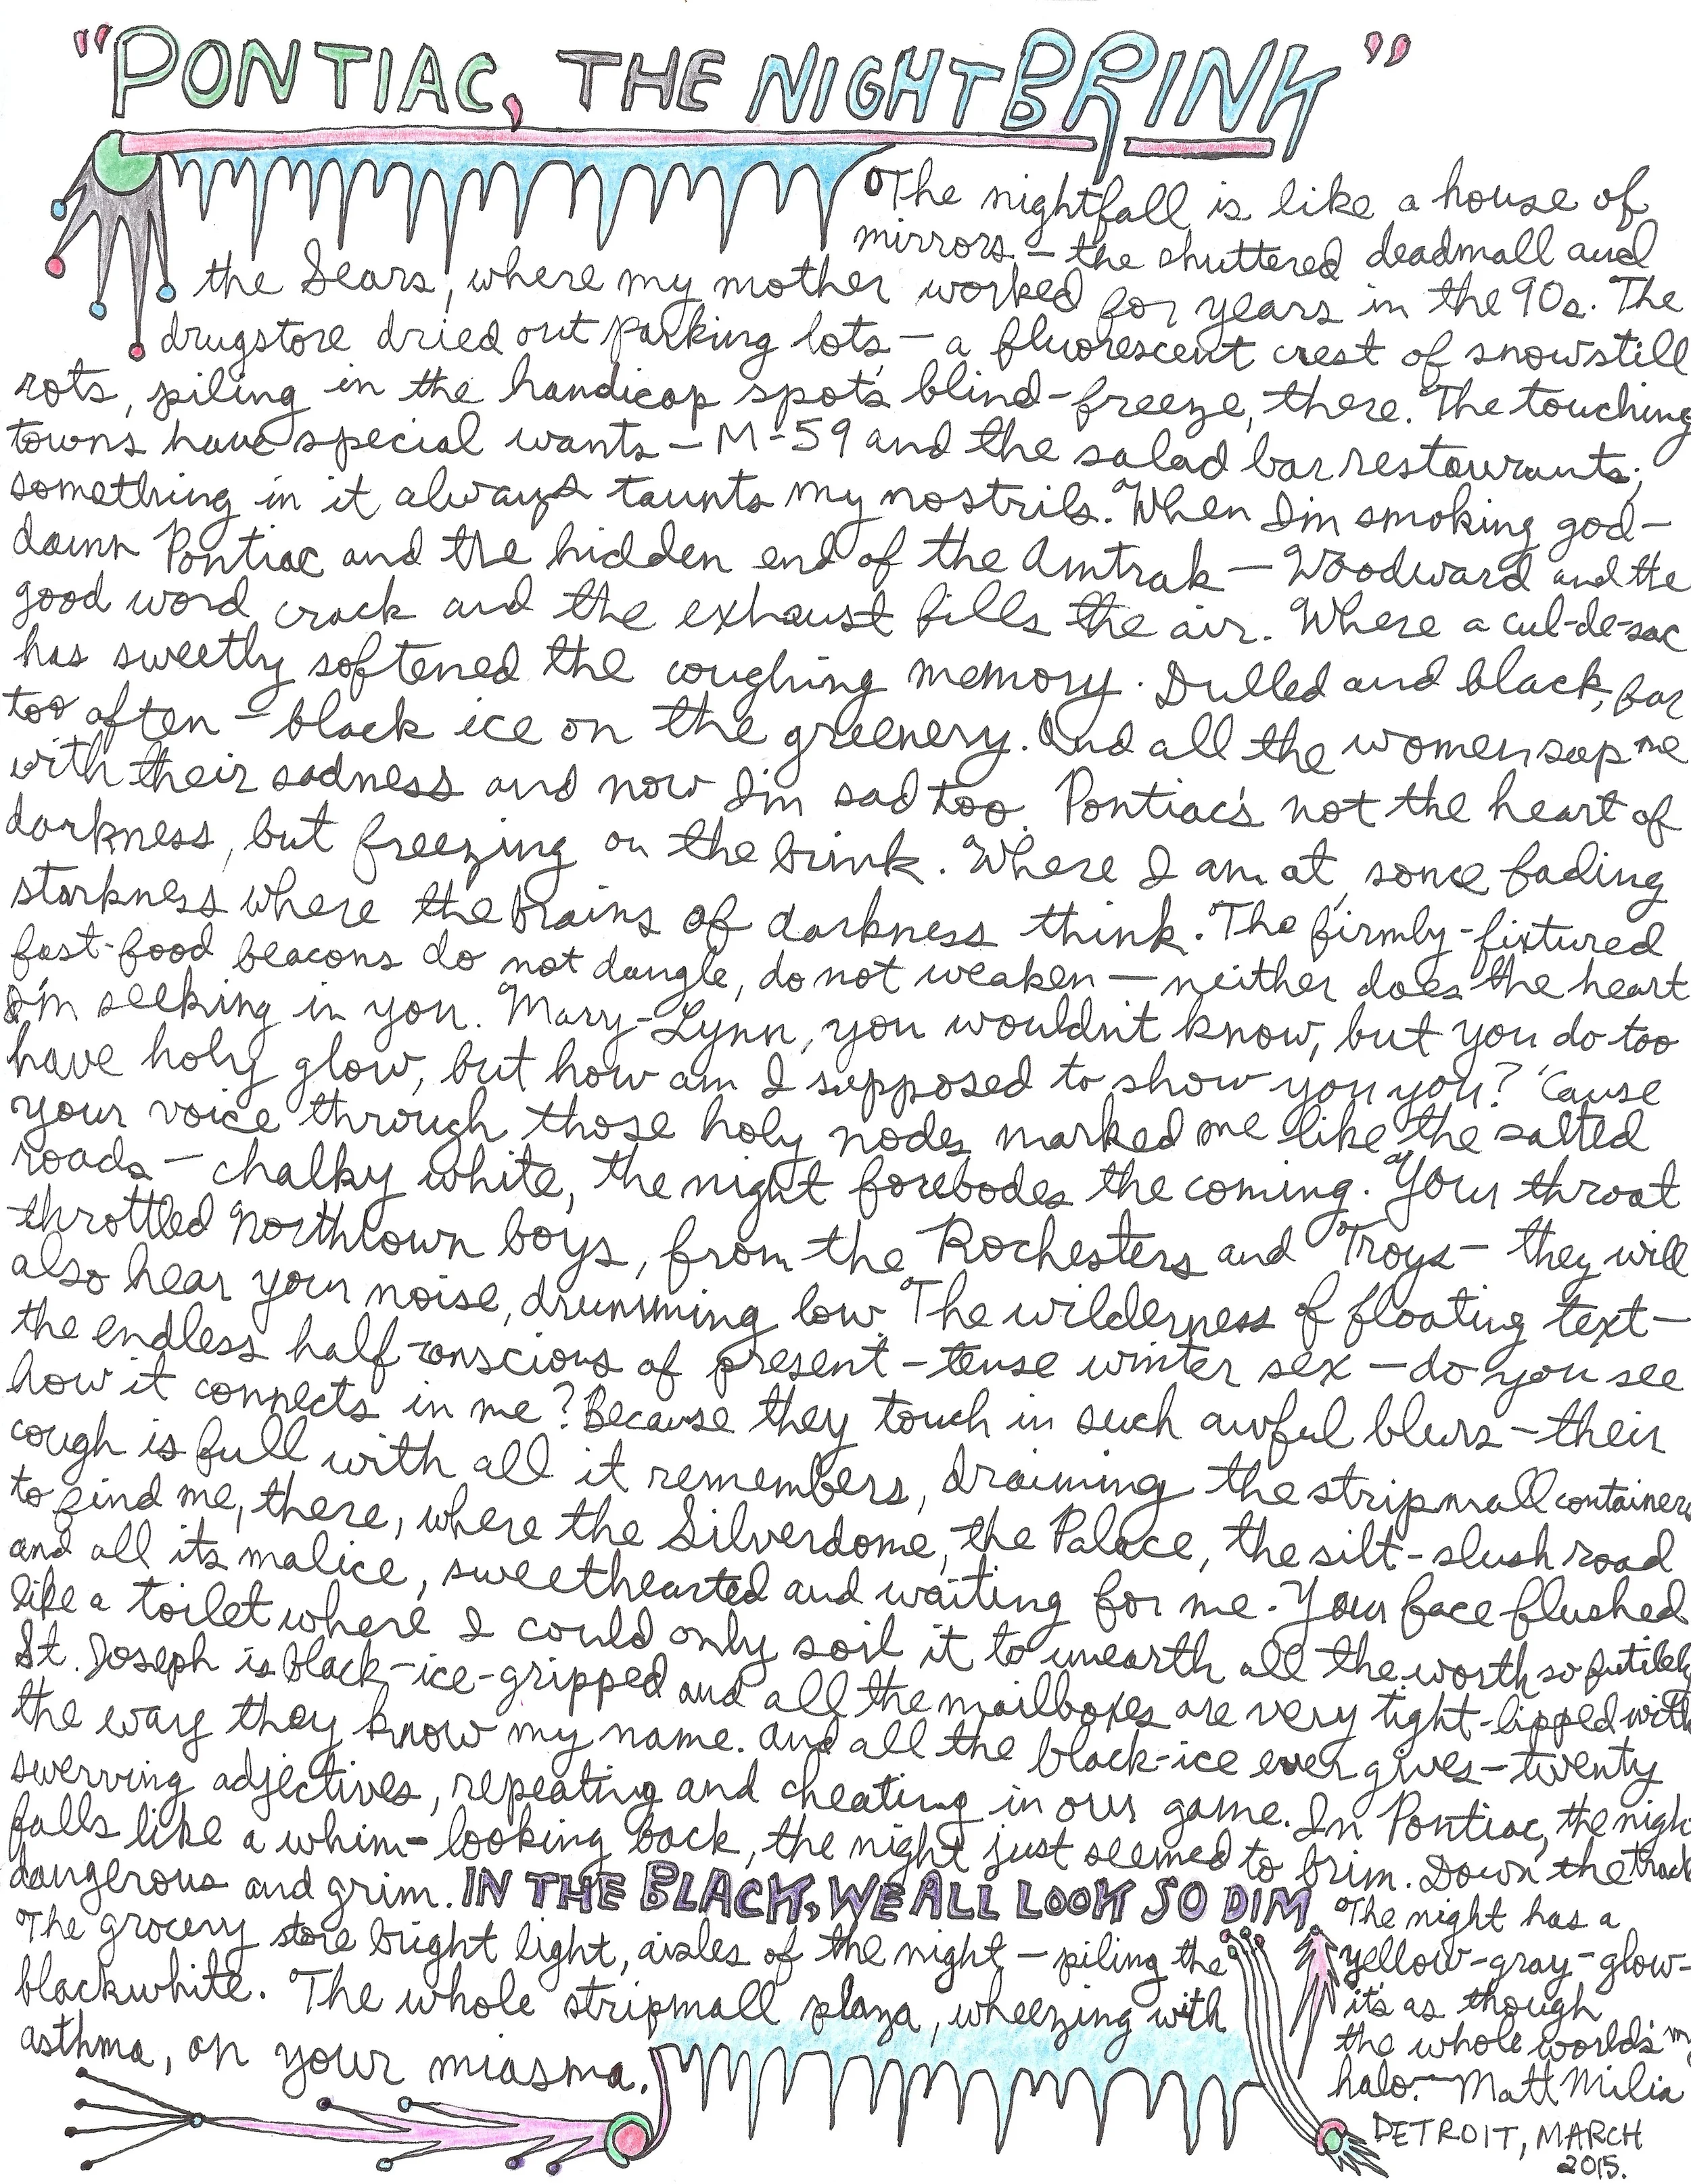 "PONTIAC, THE NIGHTBRINK"
The nightfall is like a house of
mirrors – the shuttered deadmall and
the Sears, where my mother worked for years in the 90s. The
drugstore dried out parking lots – a fluorescent crest of snow still
rots, piling in the handicap spot's blind-freeze, there. The touching
towns have special wants – M-59 and the salad bar restaurants;
something in it always taunts my nostrils. When I'm smoking god-
damn Pontiac and the hidden end of the Amtrak – Woodward and the
good word crack and the exhaust fills the air. Where a cul-de-sac
has sweetly softened the coughing memory. Dulled and black, far
too often – black ice on the greenery. And all the women sup me
with their sadness and now I'm sad too. Pontiac's not the heart of
darkness, but freezing on the brink. Where I am at, some fading
starkness where the brains of darkness think. The firmly-fixtured
fast-food beacons do not dangle, do not weaken – neither does the heart
I'm seeking in you. Mary-Lynn, you wouldn't know, but you do too
have holy glow, but how am I supposed to show you you? 'Cause
your voice through those holy nodes marked me like the salted
roads – chalky white, the night forebodes the coming. Your throat
throttled Northtown boys, from the Rochesters and Troys – they will
also hear your noise, drumming low. The wilderness of floating text –
the endless half-conscious of present-tense winter sex – do you see
how it connects in me? Because they touch in such awful blurs – their
cough is full with all it remembers, draining the stripmall containers
to find me, there, where the Silverdome, the Palace, the silt-slush road
and all its malice, sweethearted and waiting for me. Your face flushed
like a toilet where I could only soil it to unearth all the worth so futilely
St. Joseph is black-ice-gripped and all the mailboxes are very tight-lipped with
the way they know my name. And all the black-ice ever gives – twenty
swerving adjectives, repeating and cheating in our game. In Pontiac, the night
falls like a whim – looking back, the night just seemed to brim. Down the track
dangerous and grim. IN THE BLACK, WE ALL LOOK SO DIM.
The grocery store bright light, aisles of the night – piling the
blackwhite. The whole stripmall plaza, wheezing with
asthma, on your miasma.
The night has a
yellow-gray-glow –
it's as though
the whole world's my
halo. – Matt Milia
DETROIT, MARCH
2015.